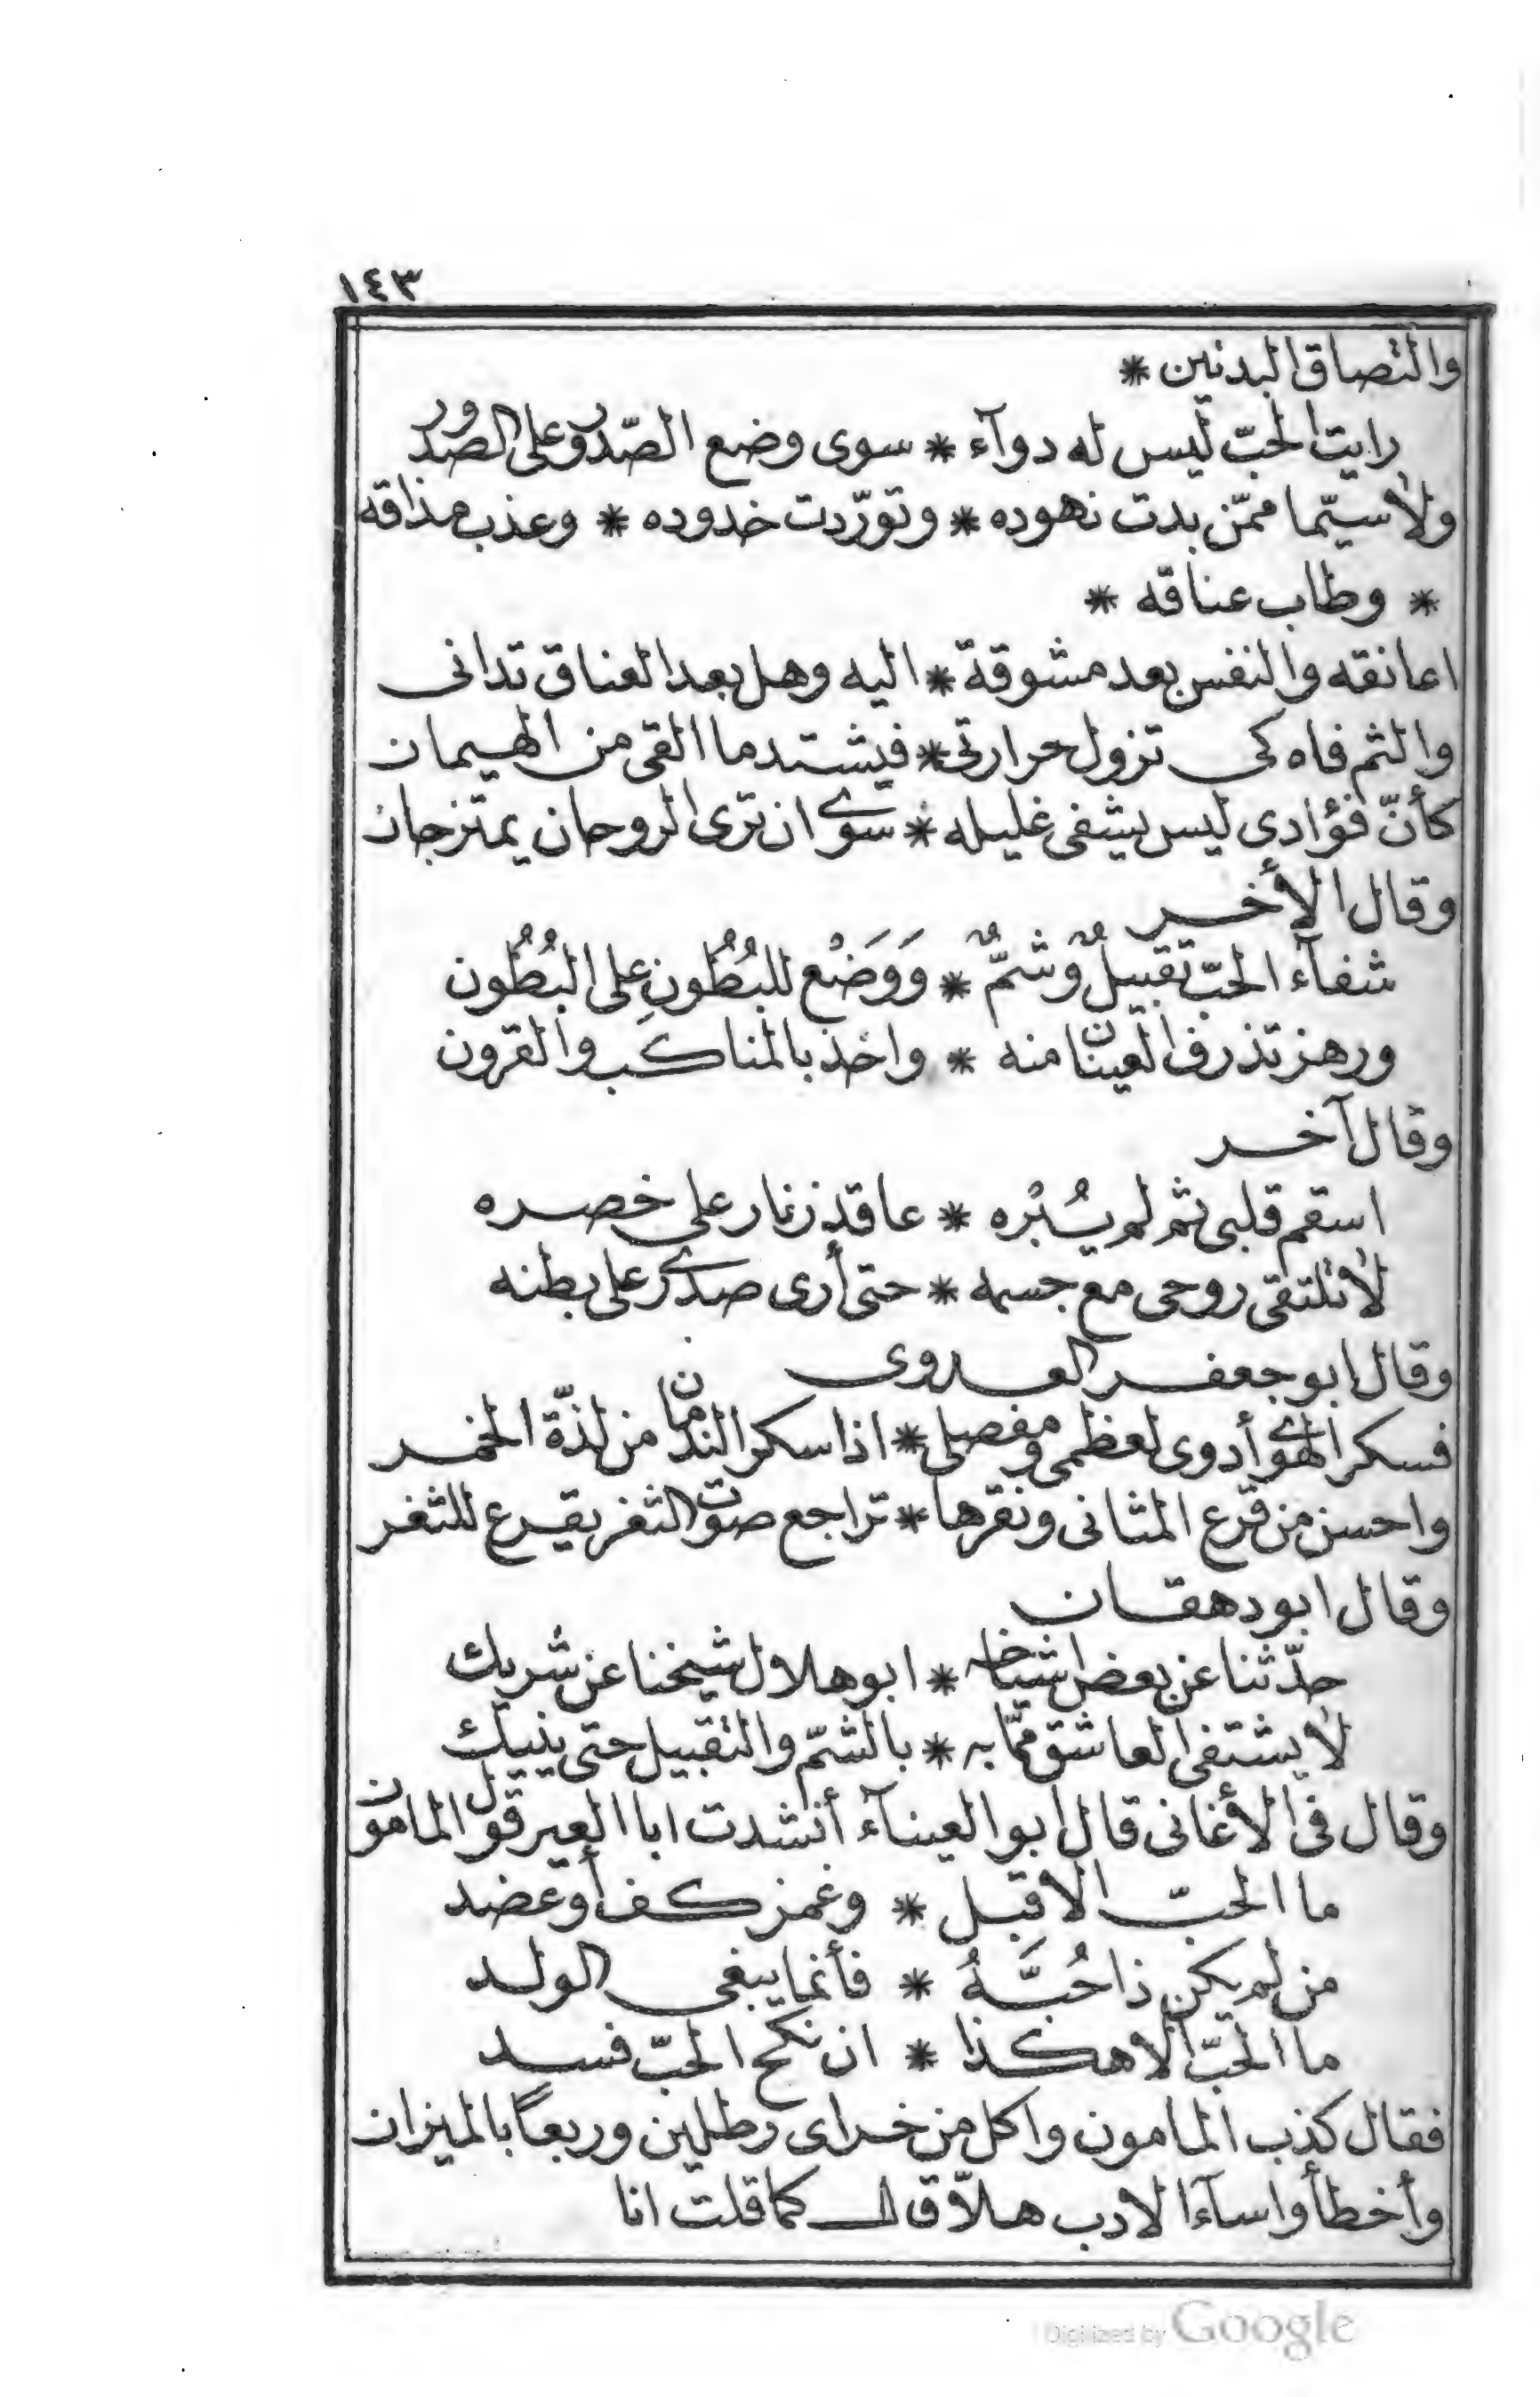 ١٤٣
والتصاق البدنين *
رايت الحبّ ليس له دوآء * سوى وضع الصّدور على الصّدور
ولاسيّما ممّن بدت نهوده * وتورّدت خدوده * وعذب مذاقه
* وطاب عناقه *
اعانقه والنفس بعد مشوقة * اليه وهل بعد العناق تدانى
والثم فاه كى تزول حرارتى * فيشتد ما القى من الهيمان
كأنّ فؤادى ليس يشفى غليله * سوى ان ترى الروحان يمتزجان
وقال الأخر
شفآء الحبّ تقبيلٌ وشمٌّ * وَوَضْع للبُطُونِ على البُطُون
ورهز تذرف العينان منه * واخذ بالمناكب والقرون
وقال آخر
اسقم قلبى ثم لم يُبْره * عاقد زنار على خصره
لا تلتقى روحى مع جسمه * حتى أرى صدرى على بطنه
وقال ابو جعفر العدوى
فسكر الهوى أدوى لعظمى ومفصلى * اذا سكر الندمان من لذّة الخمر
واحسن من قرع المثانى ونقرها * تراجع صوت الثغر يقرع للثغر
وقال ابو دهقان
حدّثنا عن بعض اشياخه * ابو هلال شيخنا عن شريك
لا يشتفى العاشق ممّا به * بالشمّ والتقبيل حتى ينيك
وقال فى الأغانى قال ابو العيناء أنشدت ابا العير قول المامون
ما الحبّ الا قبل * وغمز كف أو عضد
من لم يكن ذا حُبَّهُ * فأنما يبغى الولد
ما الحبّ الا هكذا * ان نكح الحبّ فسد
فقال كذب المامون واكل من خراى رطلين وربعاً بالميزان
وأخطأ واسآء الادب هلاّ قال كما قلت انا
Digitized by Google